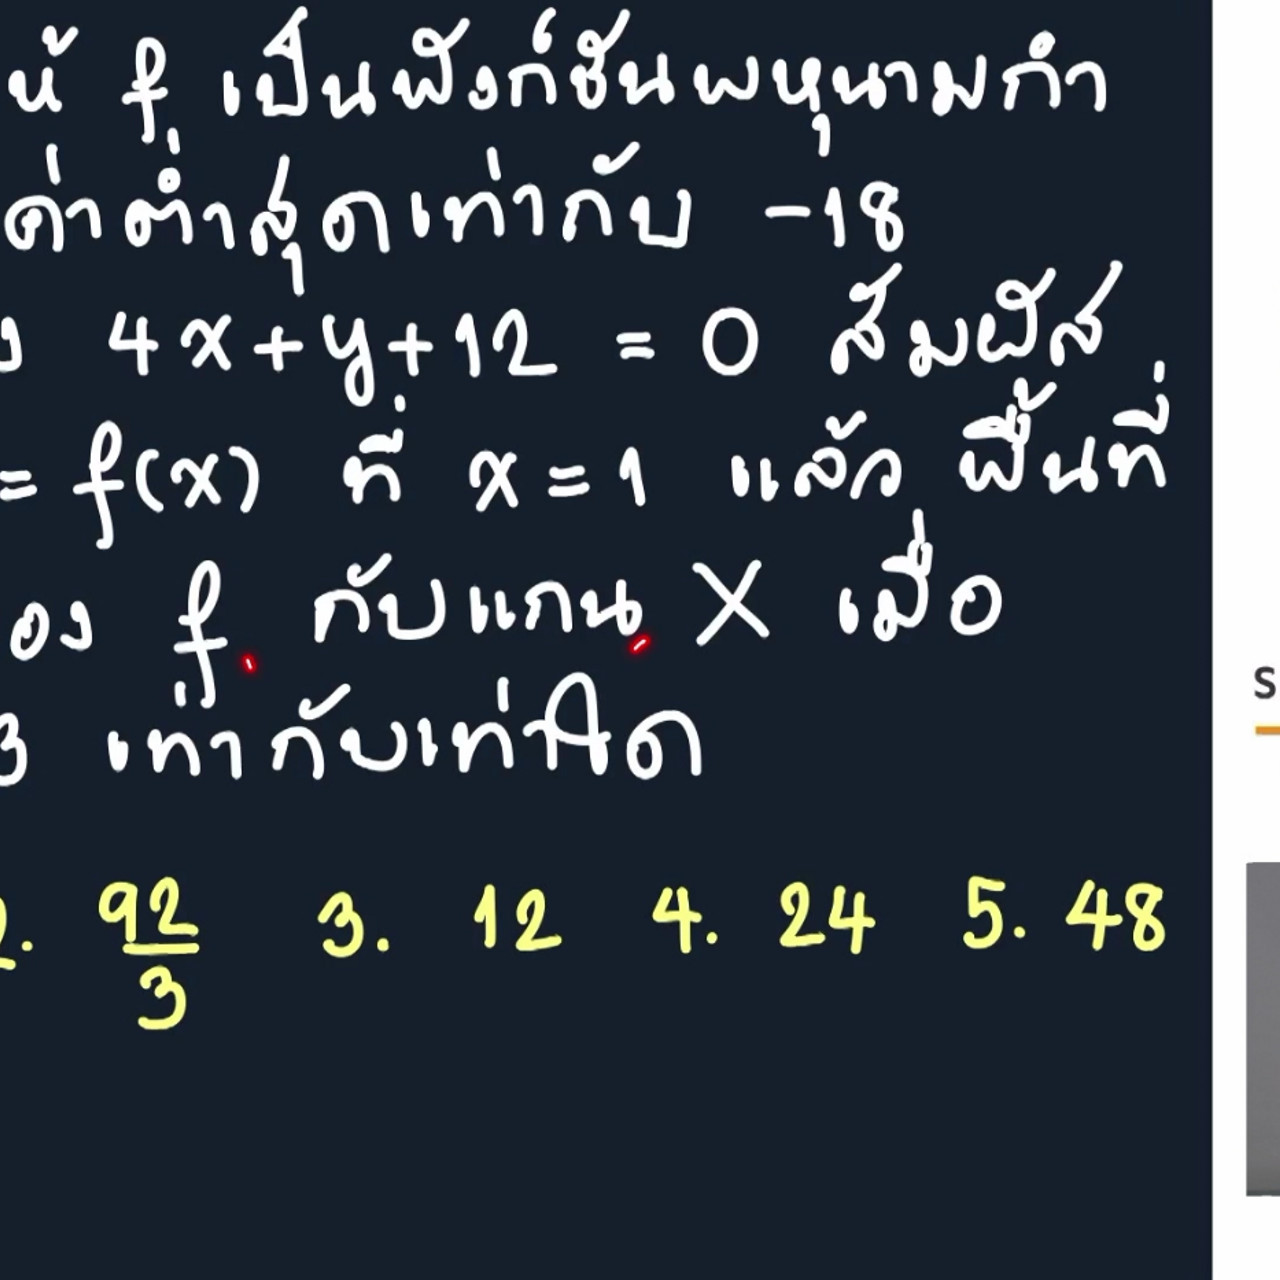 ห้ f เป็นฟังก์ชันพหุนามกำ
ค่าต่ำสุดเท่ากับ -18
ง 4x+y+12 = 0 สัมผัส
= f(x) ที่ x=1 แล้ว พื้นที่
อง f กับแกน X เมื่อ
3 เท่ากับเท่าใด
2. 92/3 3. 12 4. 24 5. 48
S